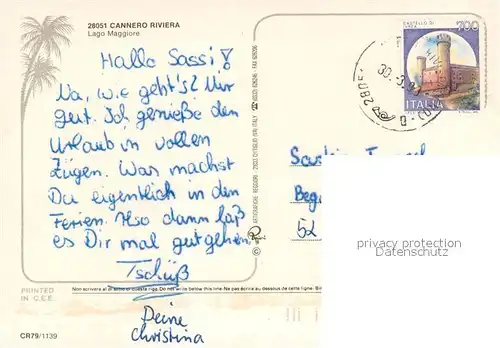 28051 CANNERO RIVIERA
Lago Maggiore
Hallo Sassi!
Na, wie geht's? Mir
gut. Ich genieße den
Urlaub in vollen
Zügen. Was machst
Du eigentlich in den
Ferien. Also dann laß
es Dir mal gutgehen.
Tschüß
Deine
Christina
PRINTED
IN C.E.E.
CR79/1139
Non scrivere al di sotto di questa riga. Do not write below this line. Ne pas écrire au dessous de cette ligne. Bitte
CASTELLO DI
700
ITALIA
30.3.
52
privacy protection
DR. RAHN